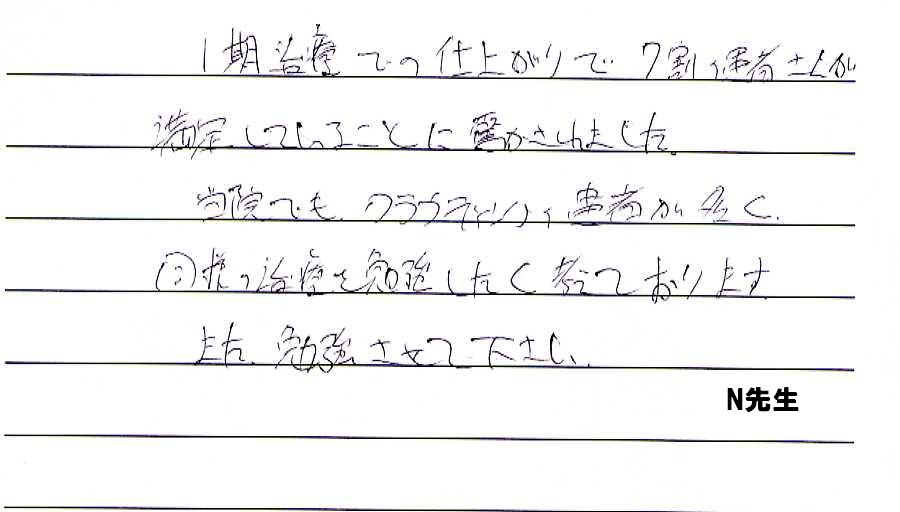 1期治療での仕上がりで7割の患者さんが
満足していることに驚かされました。
当院でも、クラウディングの患者が多く、
同様の治療を勉強したく考えております。
また、勉強させて下さい。
N先生